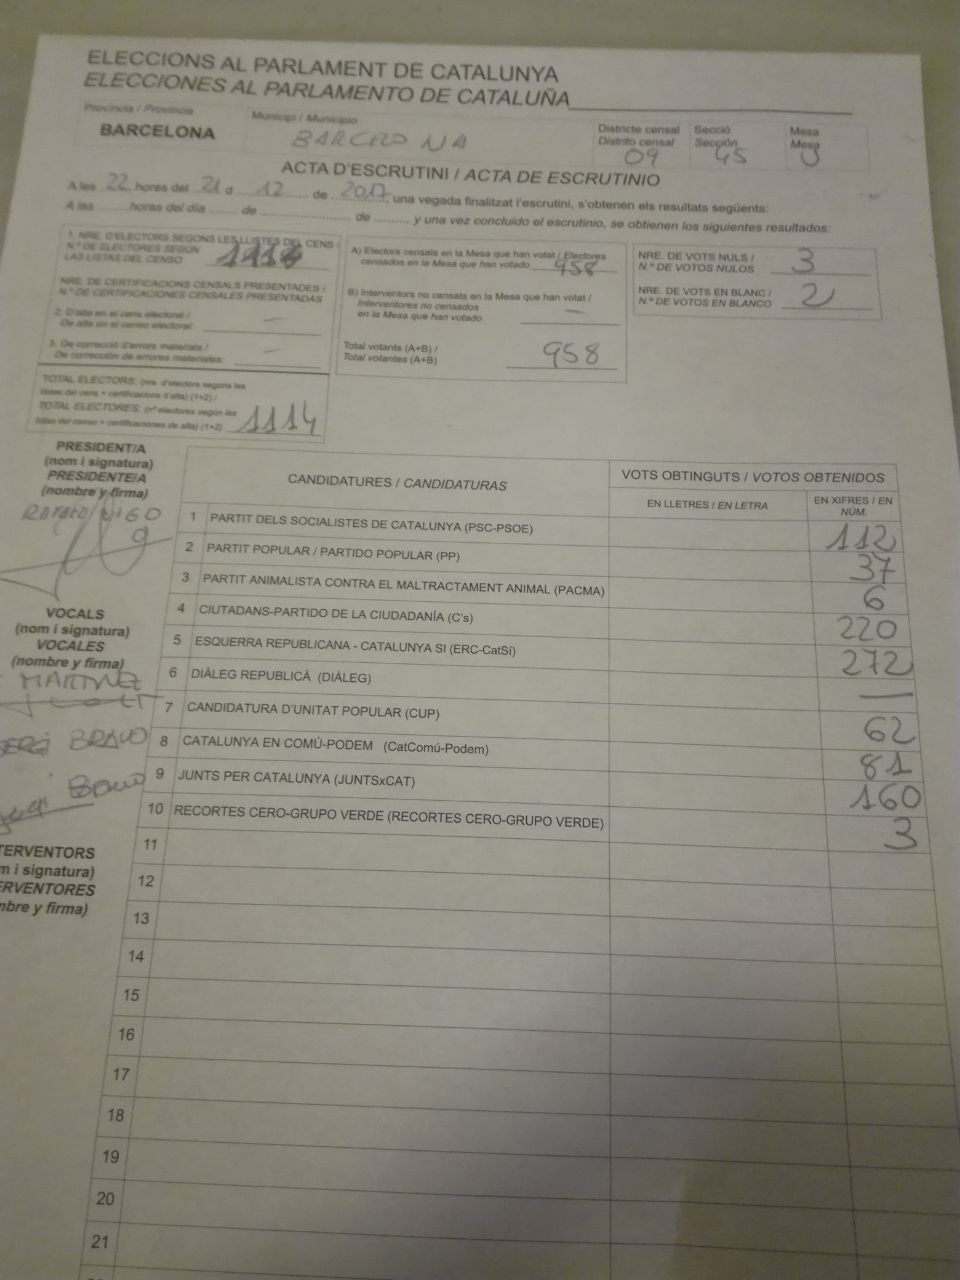 ELECCIONS AL PARLAMENT DE CATALUNYA
ELECCIONES AL PARLAMENTO DE CATALUÑA
Província / Provincia
BARCELONA
Municipi / Municipio
BARCELONA
Districte censal
Distrito censal
09
Secció
Sección
45
Mesa
Mesa
U
ACTA D'ESCRUTINI / ACTA DE ESCRUTINIO
A les 22 hores del 21 d 12 de 2017, una vegada finalitzat l'escrutini, s'obtenen els resultats següents:
A las ........ horas del día ........ de ........ de ........, y una vez concluido el escrutinio, se obtienen los siguientes resultados:
1. NRE. D'ELECTORS SEGONS LES LLISTES DEL CENS /
N.º DE ELECTORES SEGÚN
LAS LISTAS DEL CENSO
1114
NRE. DE CERTIFICACIONS CENSALS PRESENTADES /
N.º DE CERTIFICACIONES CENSALES PRESENTADAS
2. D'alta en el cens electoral /
De alta en el censo electoral: —
3. De correcció d'errors materials /
De corrección de errores materiales: —
TOTAL ELECTORS: (nre. d'electors segons les
llistes del cens + certificacions d'alta) (1+2) /
TOTAL ELECTORES: (nº electores según las
listas del censo + certificaciones de alta) (1+2) 1114
A) Electors censats en la Mesa que han votat / Electores
censados en la Mesa que han votado 958
B) Interventors no censats en la Mesa que han votat /
Interventores no censados
en la Mesa que han votado —
Total votants (A+B) /
Total votantes (A+B) 958
NRE. DE VOTS NULS /
N.º DE VOTOS NULOS 3
NRE. DE VOTS EN BLANC /
N.º DE VOTOS EN BLANCO 2
PRESIDENT/A
(nom i signatura)
PRESIDENTE/A
(nombre y firma)
VOCALS
(nom i signatura)
VOCALES
(nombre y firma)
MARTINEZ
SERGI BRAVO
Bravo
TERVENTORS
m i signatura)
ERVENTORES
mbre y firma)
CANDIDATURES / CANDIDATURAS
VOTS OBTINGUTS / VOTOS OBTENIDOS
EN LLETRES / EN LETRA
EN XIFRES / EN
NÚM.
1 PARTIT DELS SOCIALISTES DE CATALUNYA (PSC-PSOE) 112
2 PARTIT POPULAR / PARTIDO POPULAR (PP) 37
3 PARTIT ANIMALISTA CONTRA EL MALTRACTAMENT ANIMAL (PACMA) 6
4 CIUTADANS-PARTIDO DE LA CIUDADANÍA (C's) 220
5 ESQUERRA REPUBLICANA - CATALUNYA SI (ERC-CatSí) 272
6 DIÀLEG REPUBLICÀ (DIÀLEG) —
7 CANDIDATURA D'UNITAT POPULAR (CUP) 62
8 CATALUNYA EN COMÚ-PODEM (CatComú-Podem) 81
9 JUNTS PER CATALUNYA (JUNTSxCAT) 160
10 RECORTES CERO-GRUPO VERDE (RECORTES CERO-GRUPO VERDE) 3
11
12
13
14
15
16
17
18
19
20
21